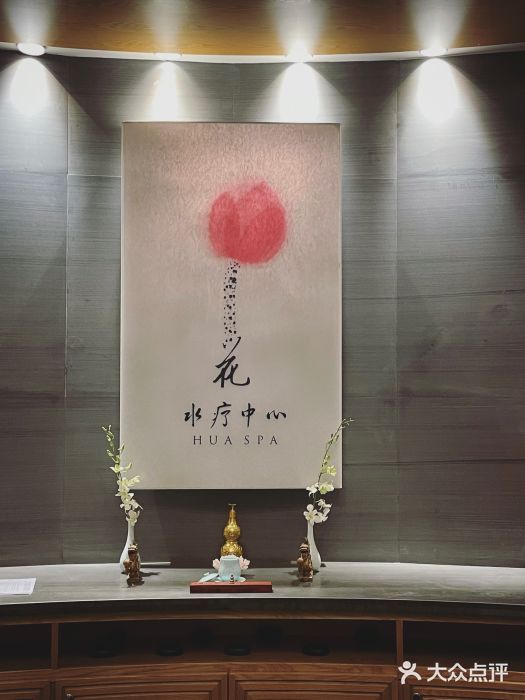 花
水疗中心
HUA SPA
大众点评